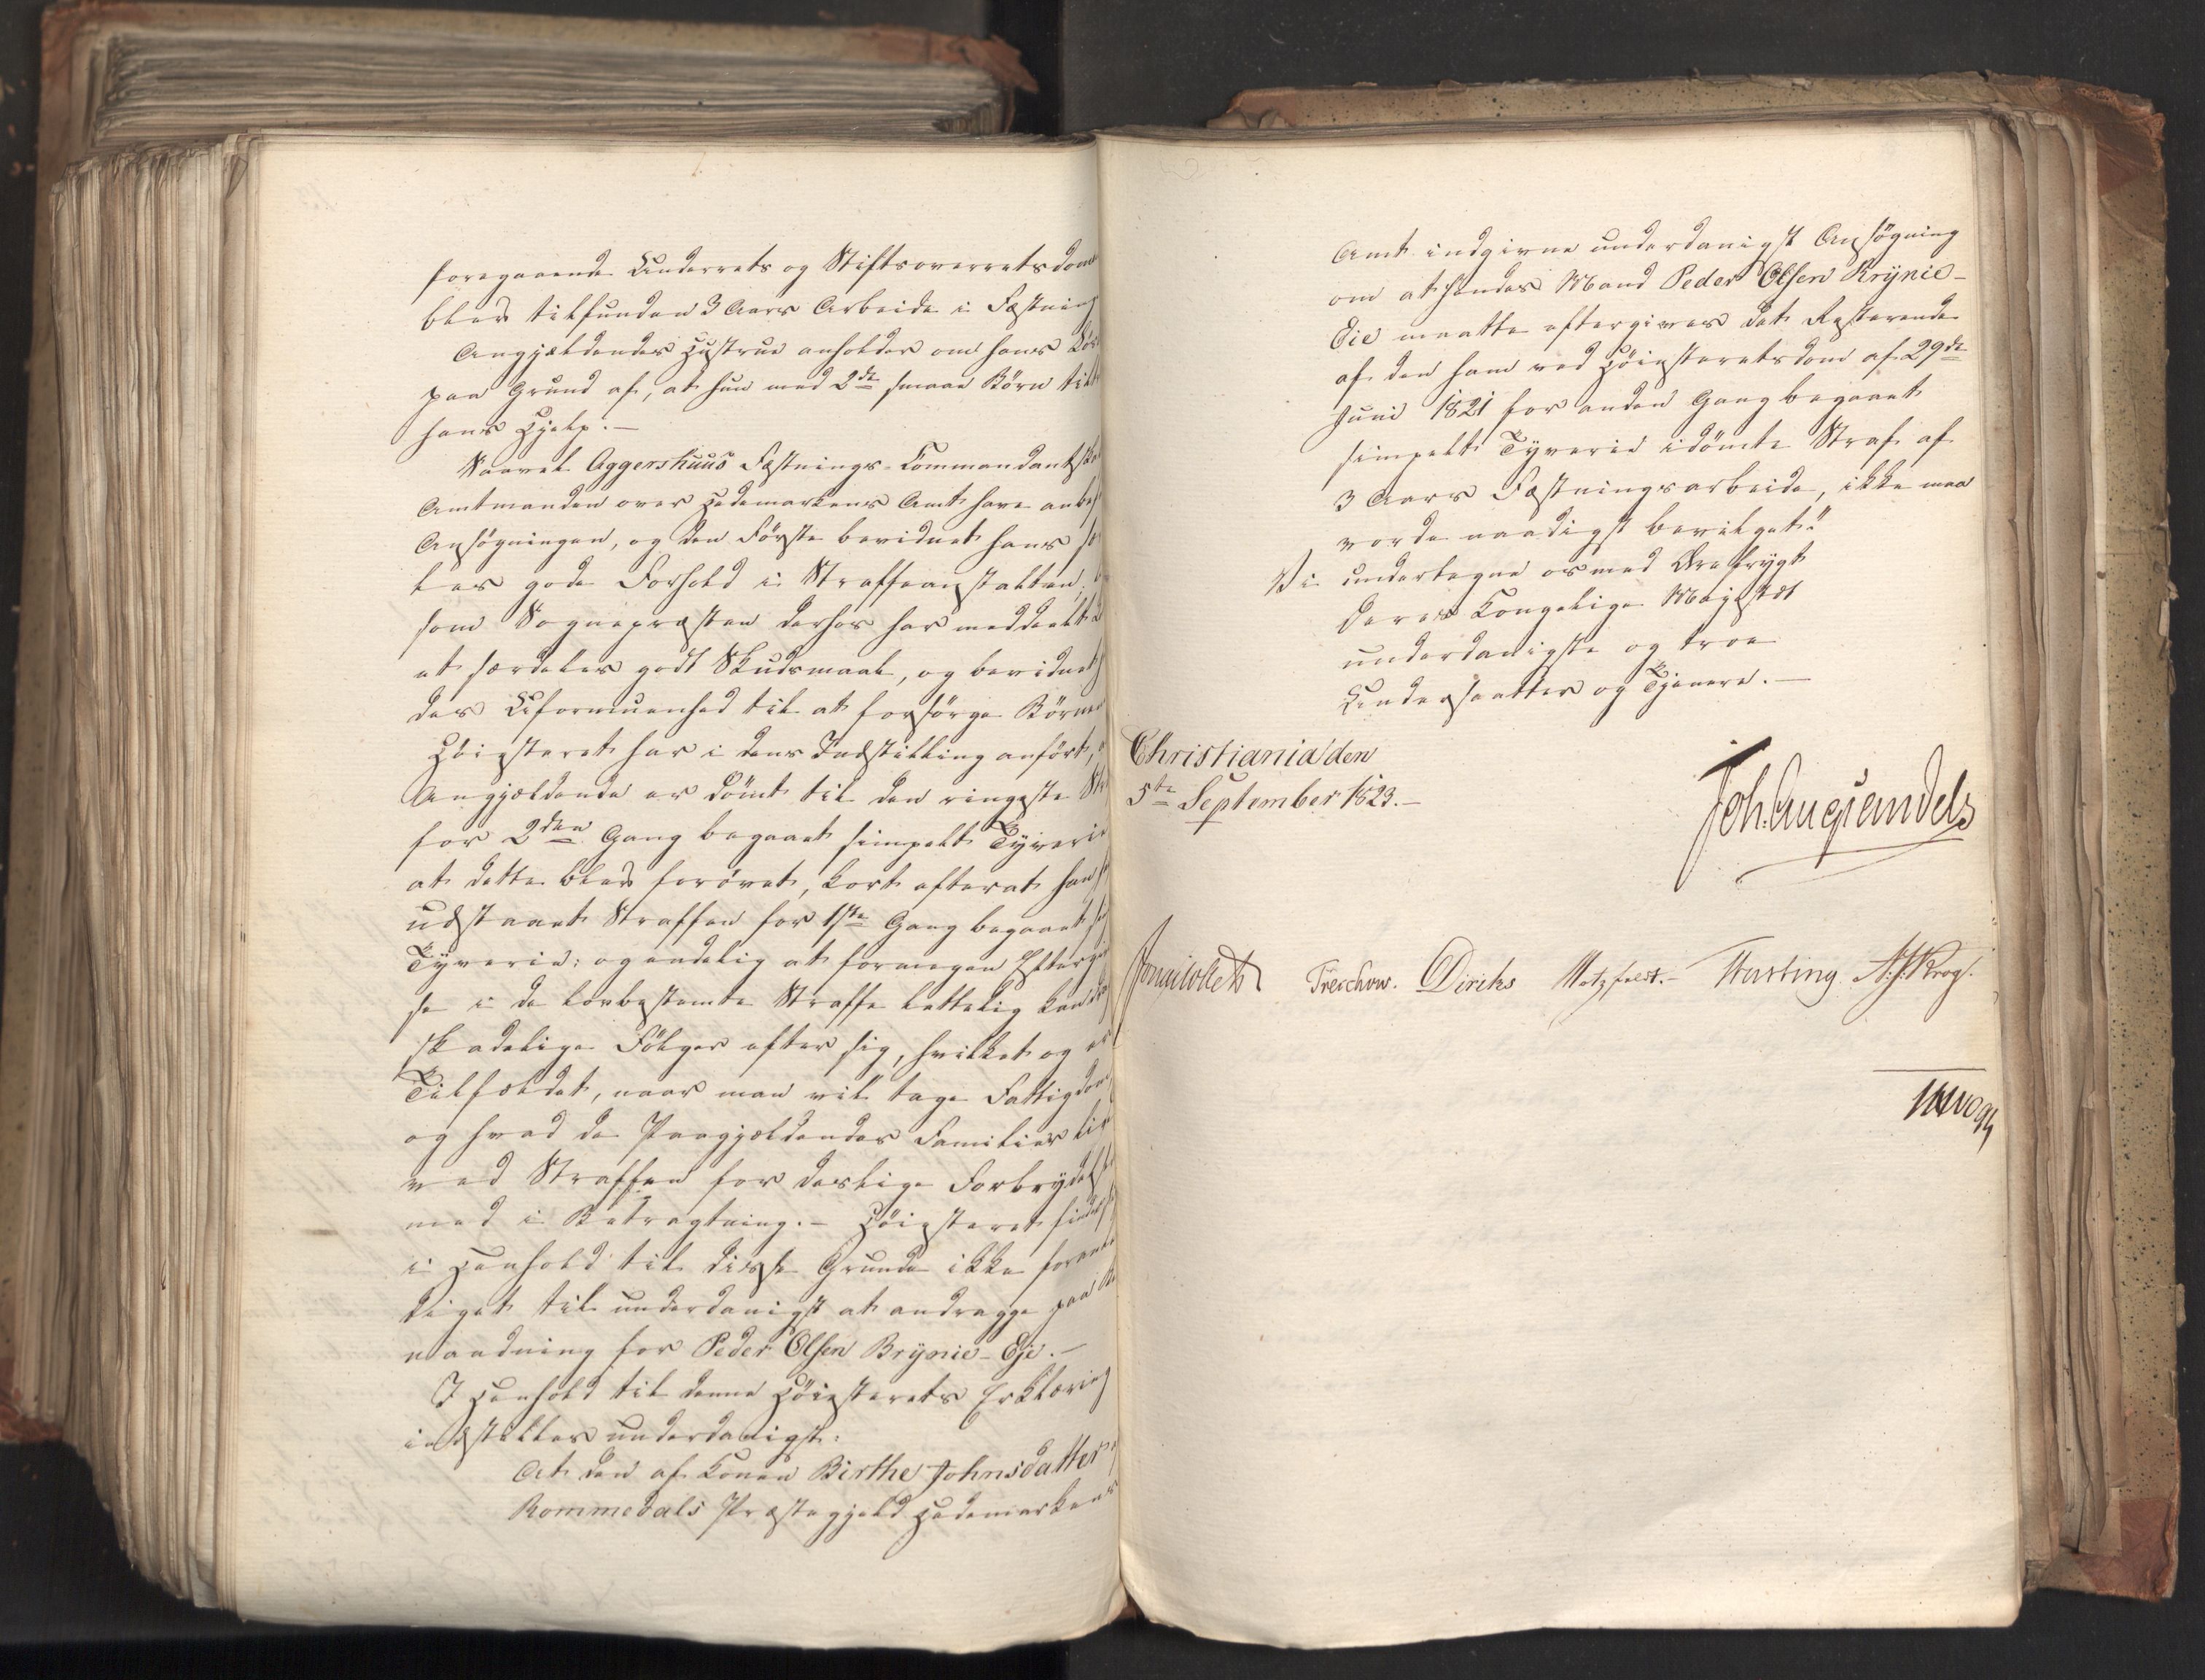 foregaaende Underrets og Stiftsoverretsdom
blev tilfunden 3 Aars Arbeide i Fæstning
Angjældendes Hustrue anholder om hans Løs
paa Grund af, at hun med 2de smaae Børn til
hans Hjelp. —
Saavel Aggershuus Fæstnings-Commandantska
Amtmanden over Hedemarkens Amt have anbef
Ansøgningen, og den Første bevidnet hans sæ
les gode Forhold i Straffeanstalten,
som Sognepræsten derhos har meddeelt
et særdeles godt Skudsmaal, og bevidnet
des Uformuenhed til at forsørge Børne
Høiesteret har i dens Indstilling anført,
Angjældende er dømt til den ringeste Str
for 2den Gang begaaet simpelt Tyverie
at dette blev forøvet, kort efterat han
udstaaet Straffen for 1ste Gang begaaet
Tyverie; og endelig at formegen Eftergi
se i de lovbestemte Straffe lettelig kan
skadelige Følger efter sig, hvilket og er
Tilfældet, naar man vil tage Fattigdom
og hvad de Paagjældendes Familier lid
ved Straffen for deslige Forbrydels
med i Betragtning. — Høiesteret finder
i Henhold til disse Grunde ikke foran
lediget til underdanigst at andrage paa Be
naadning for Peder Olsen Brynie-Eje. —
I Henhold til denne Høiesterets Erklæring
indstilles underdanigst:
At den af Konen Birthe Johnsdatter
Rommedals Præstegjeld Hedemarkens
Amt indgivne underdanigst Ansøgning
om at hendes Mand Peder Olsen Brynie-
Eie maatte eftergives det Resterende
af den ham ved Høiesteretsdom af 29de
Juni 1821 for anden Gang begaaet
simpelt Tyverie idømte Straf af
3 Aars Fæstningsarbeide, ikke maa
vorde naadigst bevilget."
Vi undertegne os med Ærefrygt
Deres Kongelige Majestæt
underdanigste og troe
Undersaatter og Tjenere. —
Christiania den
5te September 1823. —
Joh. Aug Sandels
Jonas Collett Treschow. Diriks Motzfeldt. — Fasting. N. J. Krog.